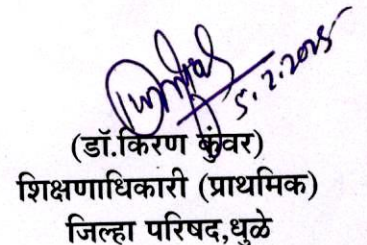 5.2.2025
(डॉ.किरण कुंवर)
शिक्षणाधिकारी (प्राथमिक)
जिल्हा परिषद,धुळे